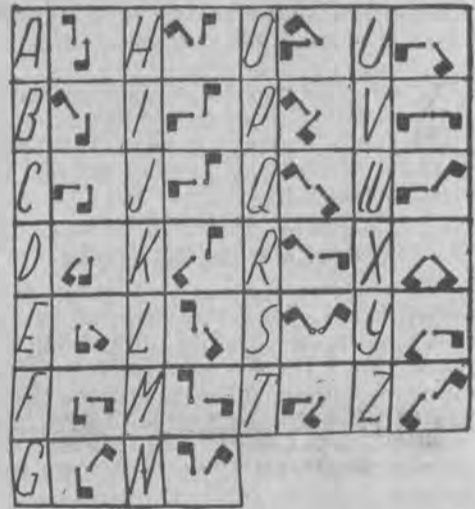 A H O U
B I P V
C J Q W
D K R X
E L S Y
F M T Z
G N